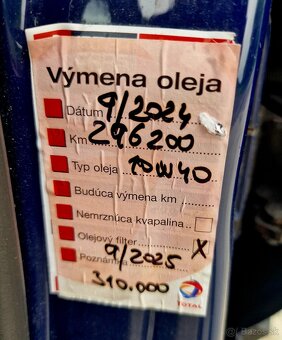 Výmena oleja
Dátum 9/2024
Km 296200
Typ oleja 10W40
Budúca výmena km
Nemrznúca kvapalina
Olejový filter X
Poznámka 9/2025
310.000
TOTAL